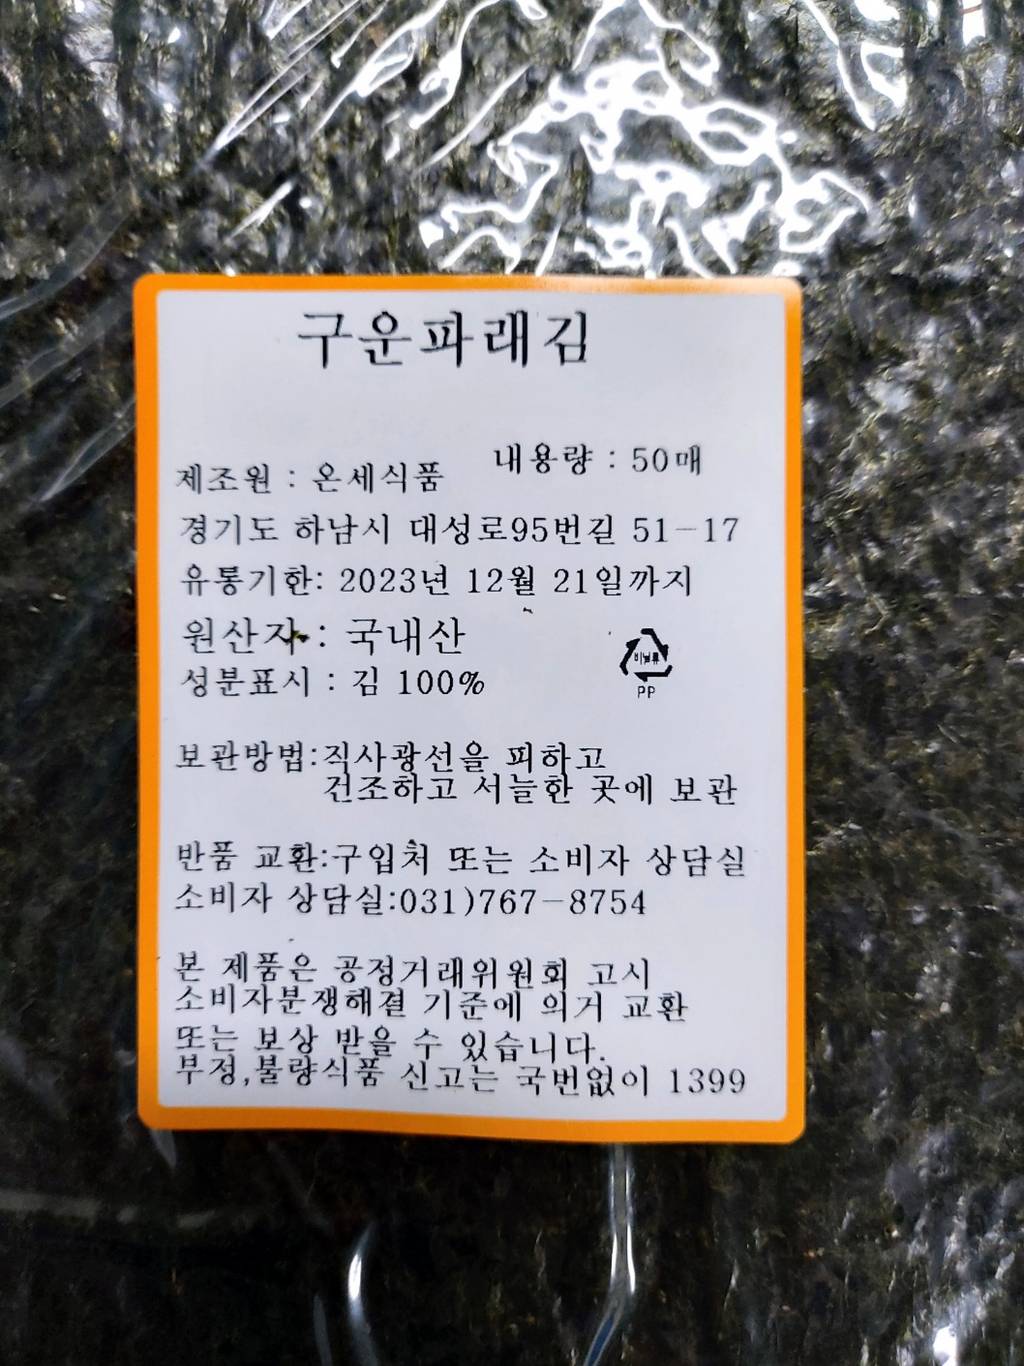 구운파래김
제조원 : 온세식품 내용량 : 50매
경기도 하남시 대성로95번길 51-17
유통기한: 2023년 12월 21일까지
원산지 : 국내산
비닐류
PP
성분표시 : 김 100%
보관방법:직사광선을 피하고
건조하고 서늘한 곳에 보관
반품 교환:구입처 또는 소비자 상담실
소비자 상담실:031)767-8754
본 제품은 공정거래위원회 고시
소비자분쟁해결 기준에 의거 교환
또는 보상 받을 수 있습니다.
부정,불량식품 신고는 국번없이 1399